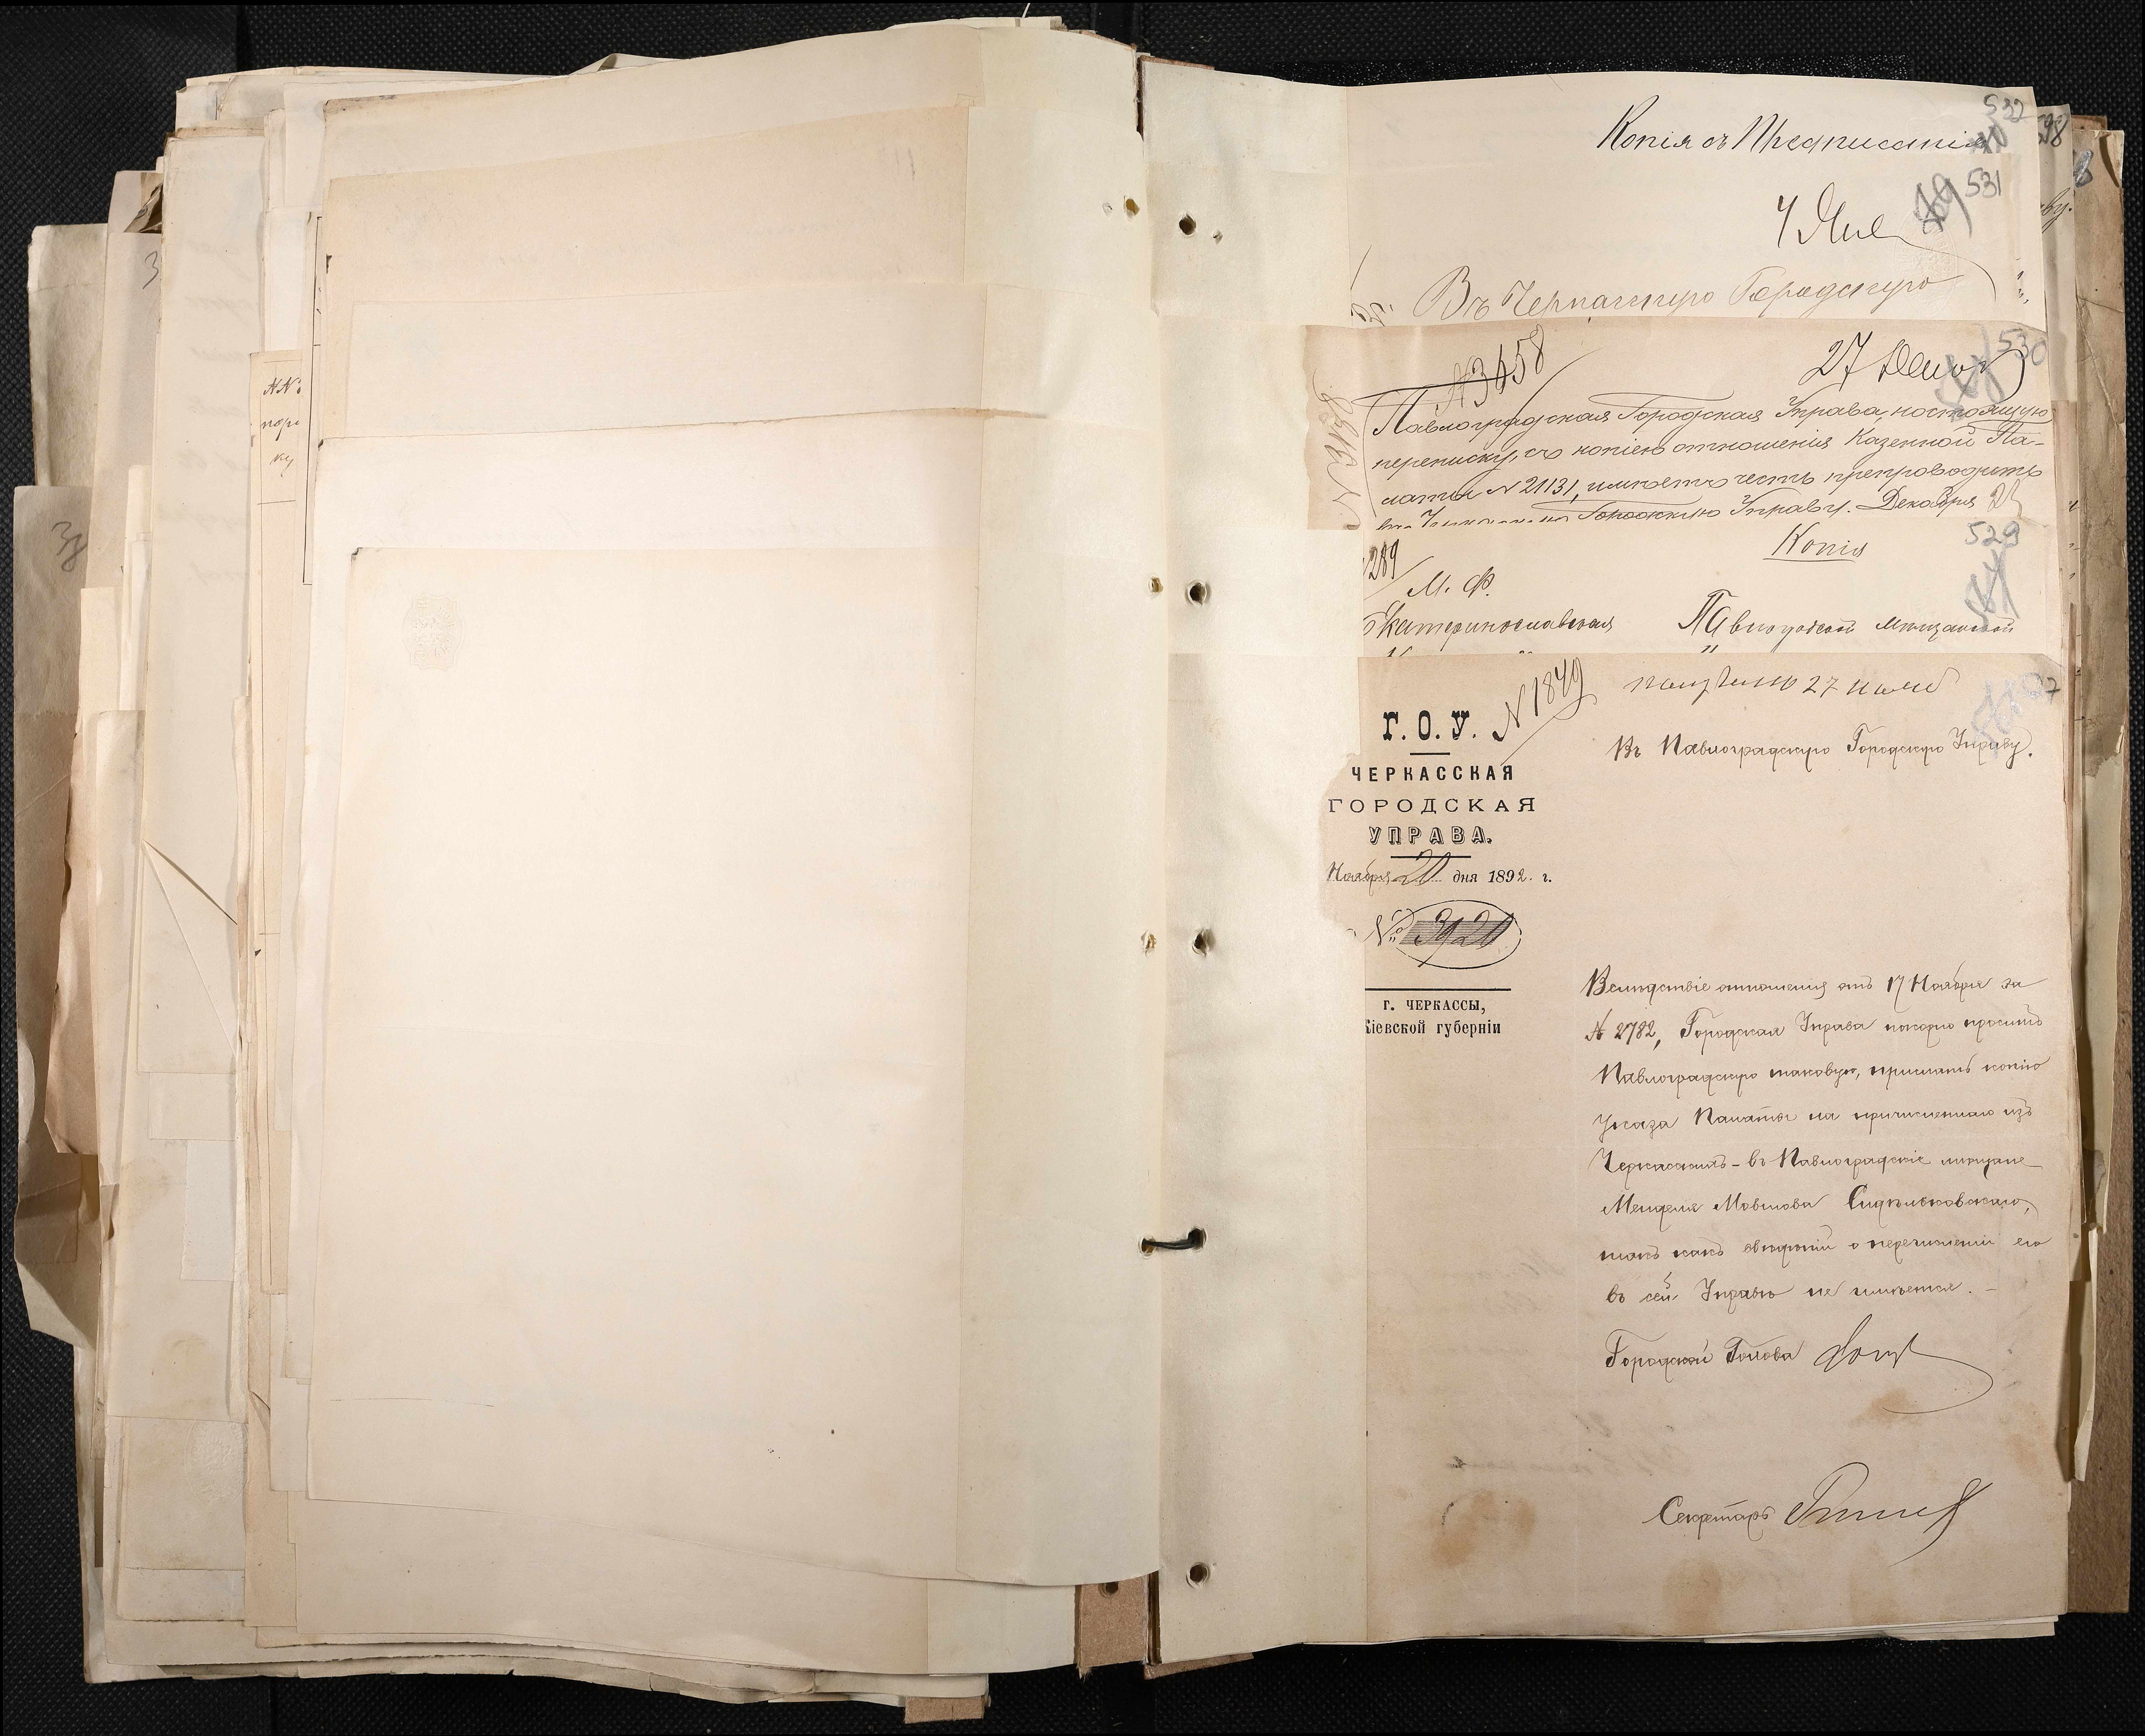 532
Копія съ Предписанія
531
Въ Черкасскую Городскую
530
№ 3658
27
Павлоградская Городская Управа, настоящую
переписку, съ копіею отношенія Казенной Па-
латы № 21131, имѣетъ честь препроводить
въ Черкасскую Городскую Управу. Декабря
№ 3188
529
Копія
289
М. Ф.
Екатеринославская
мѣщанской
№ 1849
получено 27 нояб
Въ Павлоградскую Городскую Управу.
Г. О. У.
ЧЕРКАССКАЯ
ГОРОДСКАЯ
УПРАВА.
Ноября 20 дня 1892. г.
№ 3920
Г. ЧЕРКАССЫ,
Кіевской губерніи
Вслѣдствіе отношенія отъ 17 Ноября за
№ 2782, Городская Управа покорно проситъ
Павлоградскую таковую, прислать копію
Указа Палаты на причисленнаго изъ
Черкасскихъ - въ Павлоградскіе мѣщане
Менделя Мовшова Сидѣльковскаго,
такъ какъ свѣдѣній о перечисленіи его
въ сей Управѣ не имѣется. -
Городской Голова
Секретарь